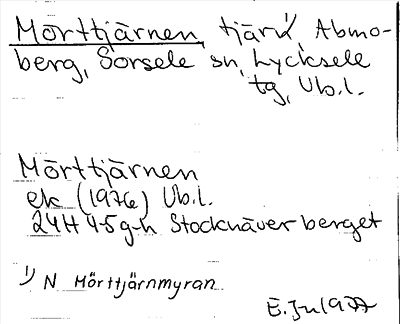 Mörttjärnen, tjärn¹⁾, Abmo-
berg, Sorsele sn, Lycksele
tg, Vb.l.
Mörttjärnen
ek (1976) Vb.l.
24H 4-5 g-h Stocknäverberget
1) N Mörttjärnmyran.
E.Ju 1977